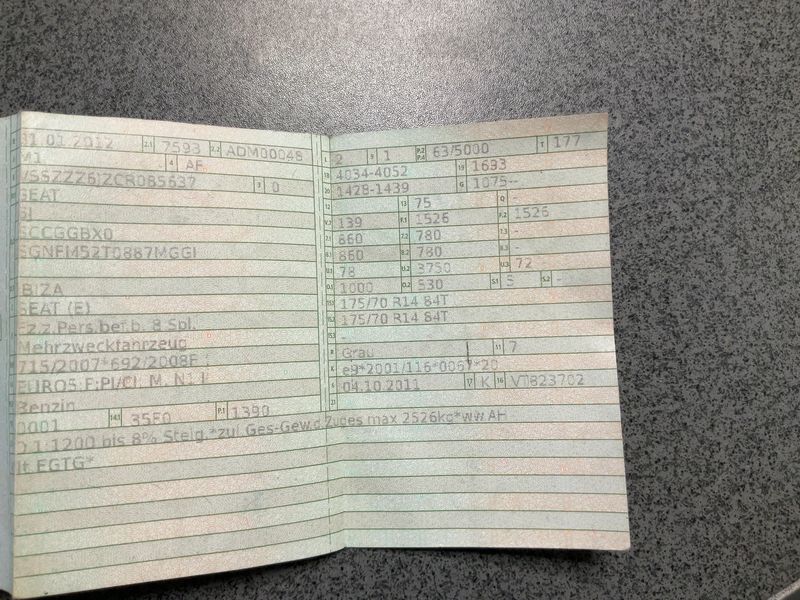 01.01.2012 2.1 7593 2.2 ADM00048
M1 4 AF
VSSZZZ6JZCR085637 3 0
SEAT
6J
SCCGGBX0
SGNFM52T0887MGGI
IBIZA
SEAT (E)
Fz.z.Pers.bef.b. 8 Spl.
Mehrzweckfahrzeug
715/2007*692/2008F
EURO5 F;PI/CI, M, N1 I
Benzin
0001 14.1 35F0 P.1 1390
O.1:1200 bis 8% Steig.*zul Ges-Gew.d.Zuges max 2526kg*ww.AH
lt.EGTG*
L 2 9 1 P.2 P.4 63/5000 T 177
18 4034-4052 19 1693
20 1428-1439 G 1075--
12 - 13 75 Q -
V.7 139 F.1 1526 F.2 1526
7.1 860 7.2 780 7.3 -
8.1 860 8.2 780 8.3 -
U.1 78 U.2 3750 U.3 72
O.1 1000 O.2 530 S.1 5 S.2 -
15.1 175/70 R14 84T
15.2 175/70 R14 84T
15.3 -
R Grau 11 7
K e9*2001/116*0067*20
6 04.10.2011 17 K 16 VT823702
21